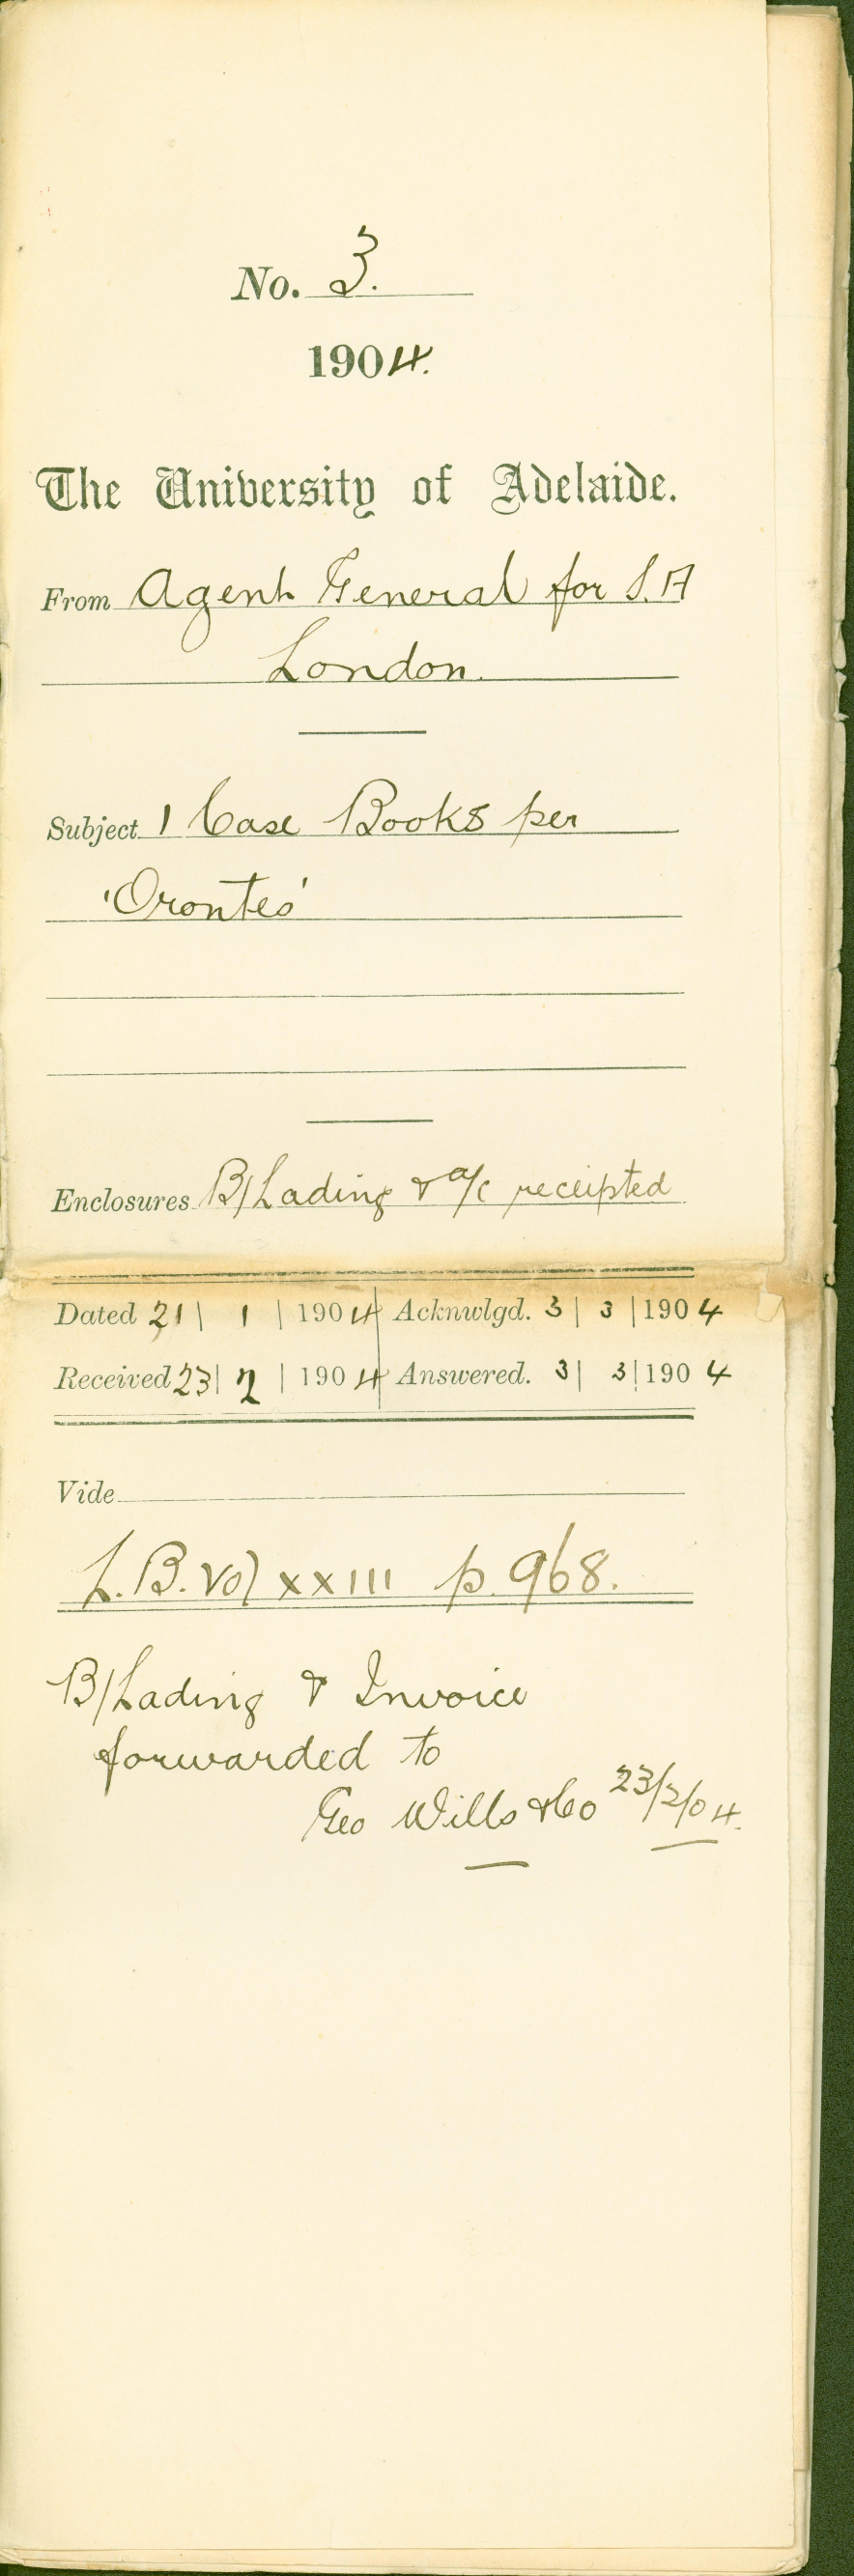 No. 3.
1904.
The University of Adelaide.
From Agent General for S.A
London.
Subject 1 Case Books per
'Orontes'
Enclosures B/Lading & a/c receipted
Dated 21 | 1 | 1904 Acknwlgd. 3 | 3 | 1904
Received 23 | 2 | 1904 Answered. 3 | 3 | 1904
Vide
L.B. Vol XXIII p. 968.
B/Lading & Invoice
forwarded to
Geo Wills & Co 23/2/04.